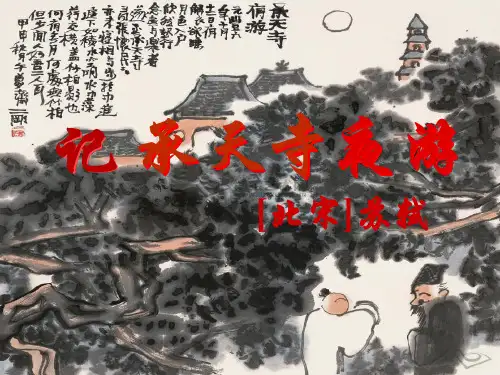 承天寺
夜游
元豐六
年十月
十二日夜
解衣欲睡
月色入户
欣然起行
念無与樂者
遂至承天寺
尋張懷民
亦未寢相与步于中庭
庭下如積水空明水中藻
荇交橫蓋竹柏影也
何夜無月何處無竹柏
但少閒人如吾二人耳
甲申秋月于
记承天寺夜游
[北宋]苏轼